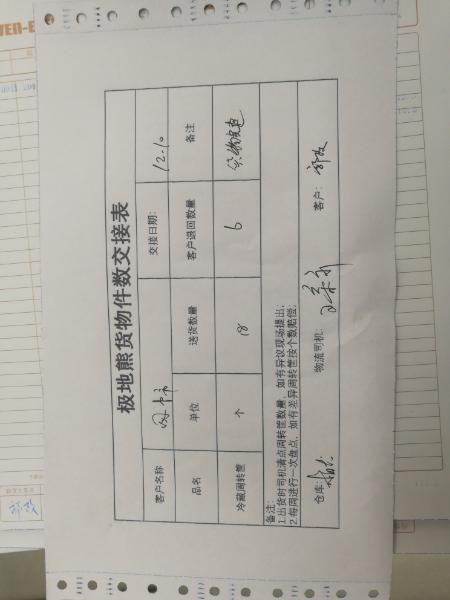 极地熊货物件数交接表
客户名称 交接日期: 12.10
品名 单位 送货数量 客户退回数量 备注
冷藏周转筐 个 18 6
备注:
1.出货时司机清点周转筐数量,如有异议现场提出;
2.每周进行一次盘点,如有差异周转筐按个数赔偿;
仓库: 物流司机: 客户: